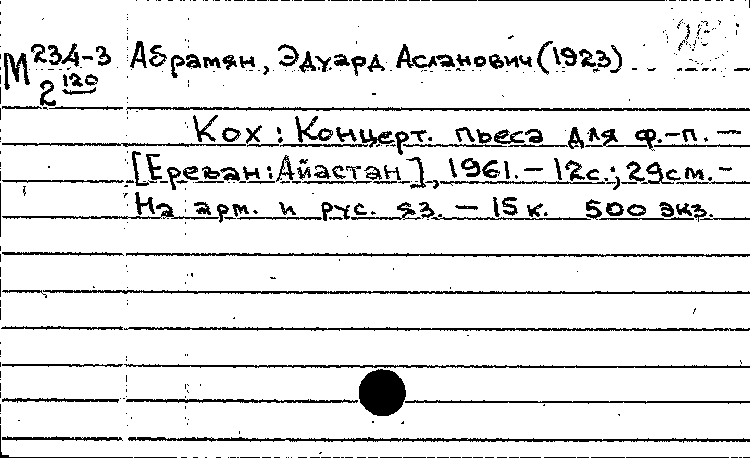 М 234-3 Абрамян, Эдуард Асланович (1923)
2 120
Кох: Концерт. пьеса для ф.-п. —
[Ереван: Айастан], 1961. — 12с.; 29см. -
На арм. и рус. яз. — 15к. 500 экз.